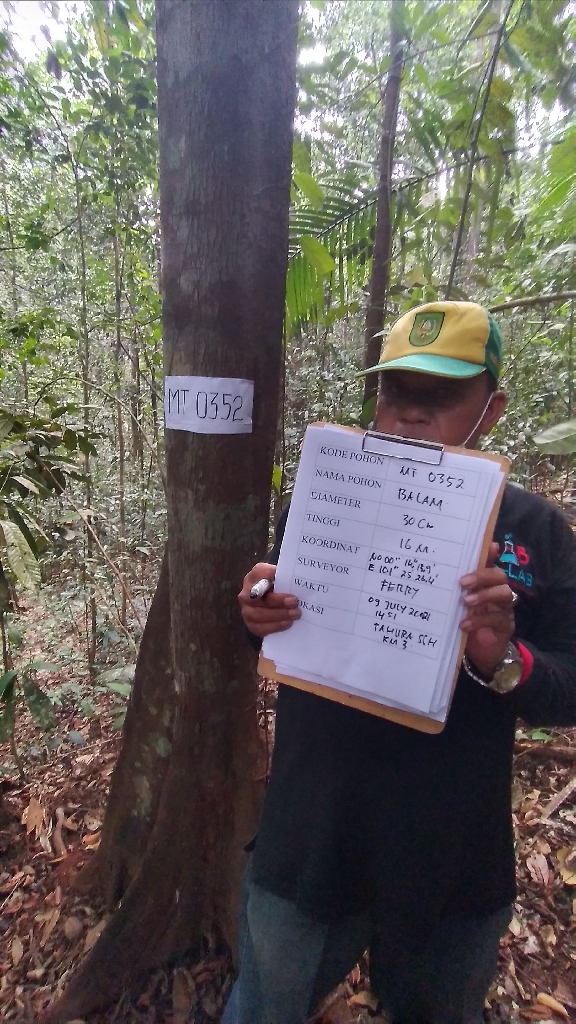 MT 0352
KODE POHON MT 0352
NAMA POHON BALAM
DIAMETER 30 CM
TINGGI 16 M.
KOORDINAT N 00°
E 101° 25'
SURVEYOR FERRY
WAKTU 09 JULY 2021
1451
OKASI TAHURA SSH
KM 3
LAB